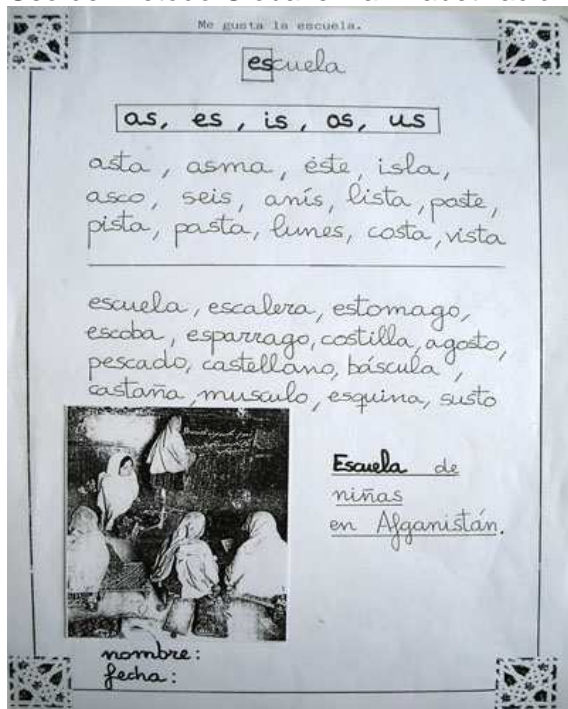 Me gusta la escuela.
escuela
as, es, is, os, us
asta, asma, éste, isla,
asco, seis, anís, lista, poste,
pista, pasta, lunes, costa, vista
escuela, escalera, estomago,
escoba, esparrago, costilla, agosto,
pescado, castellano, báscula,
castaña, musculo, esquina, susto
Escuela de
niñas
en Afganistán.
nombre:
fecha: